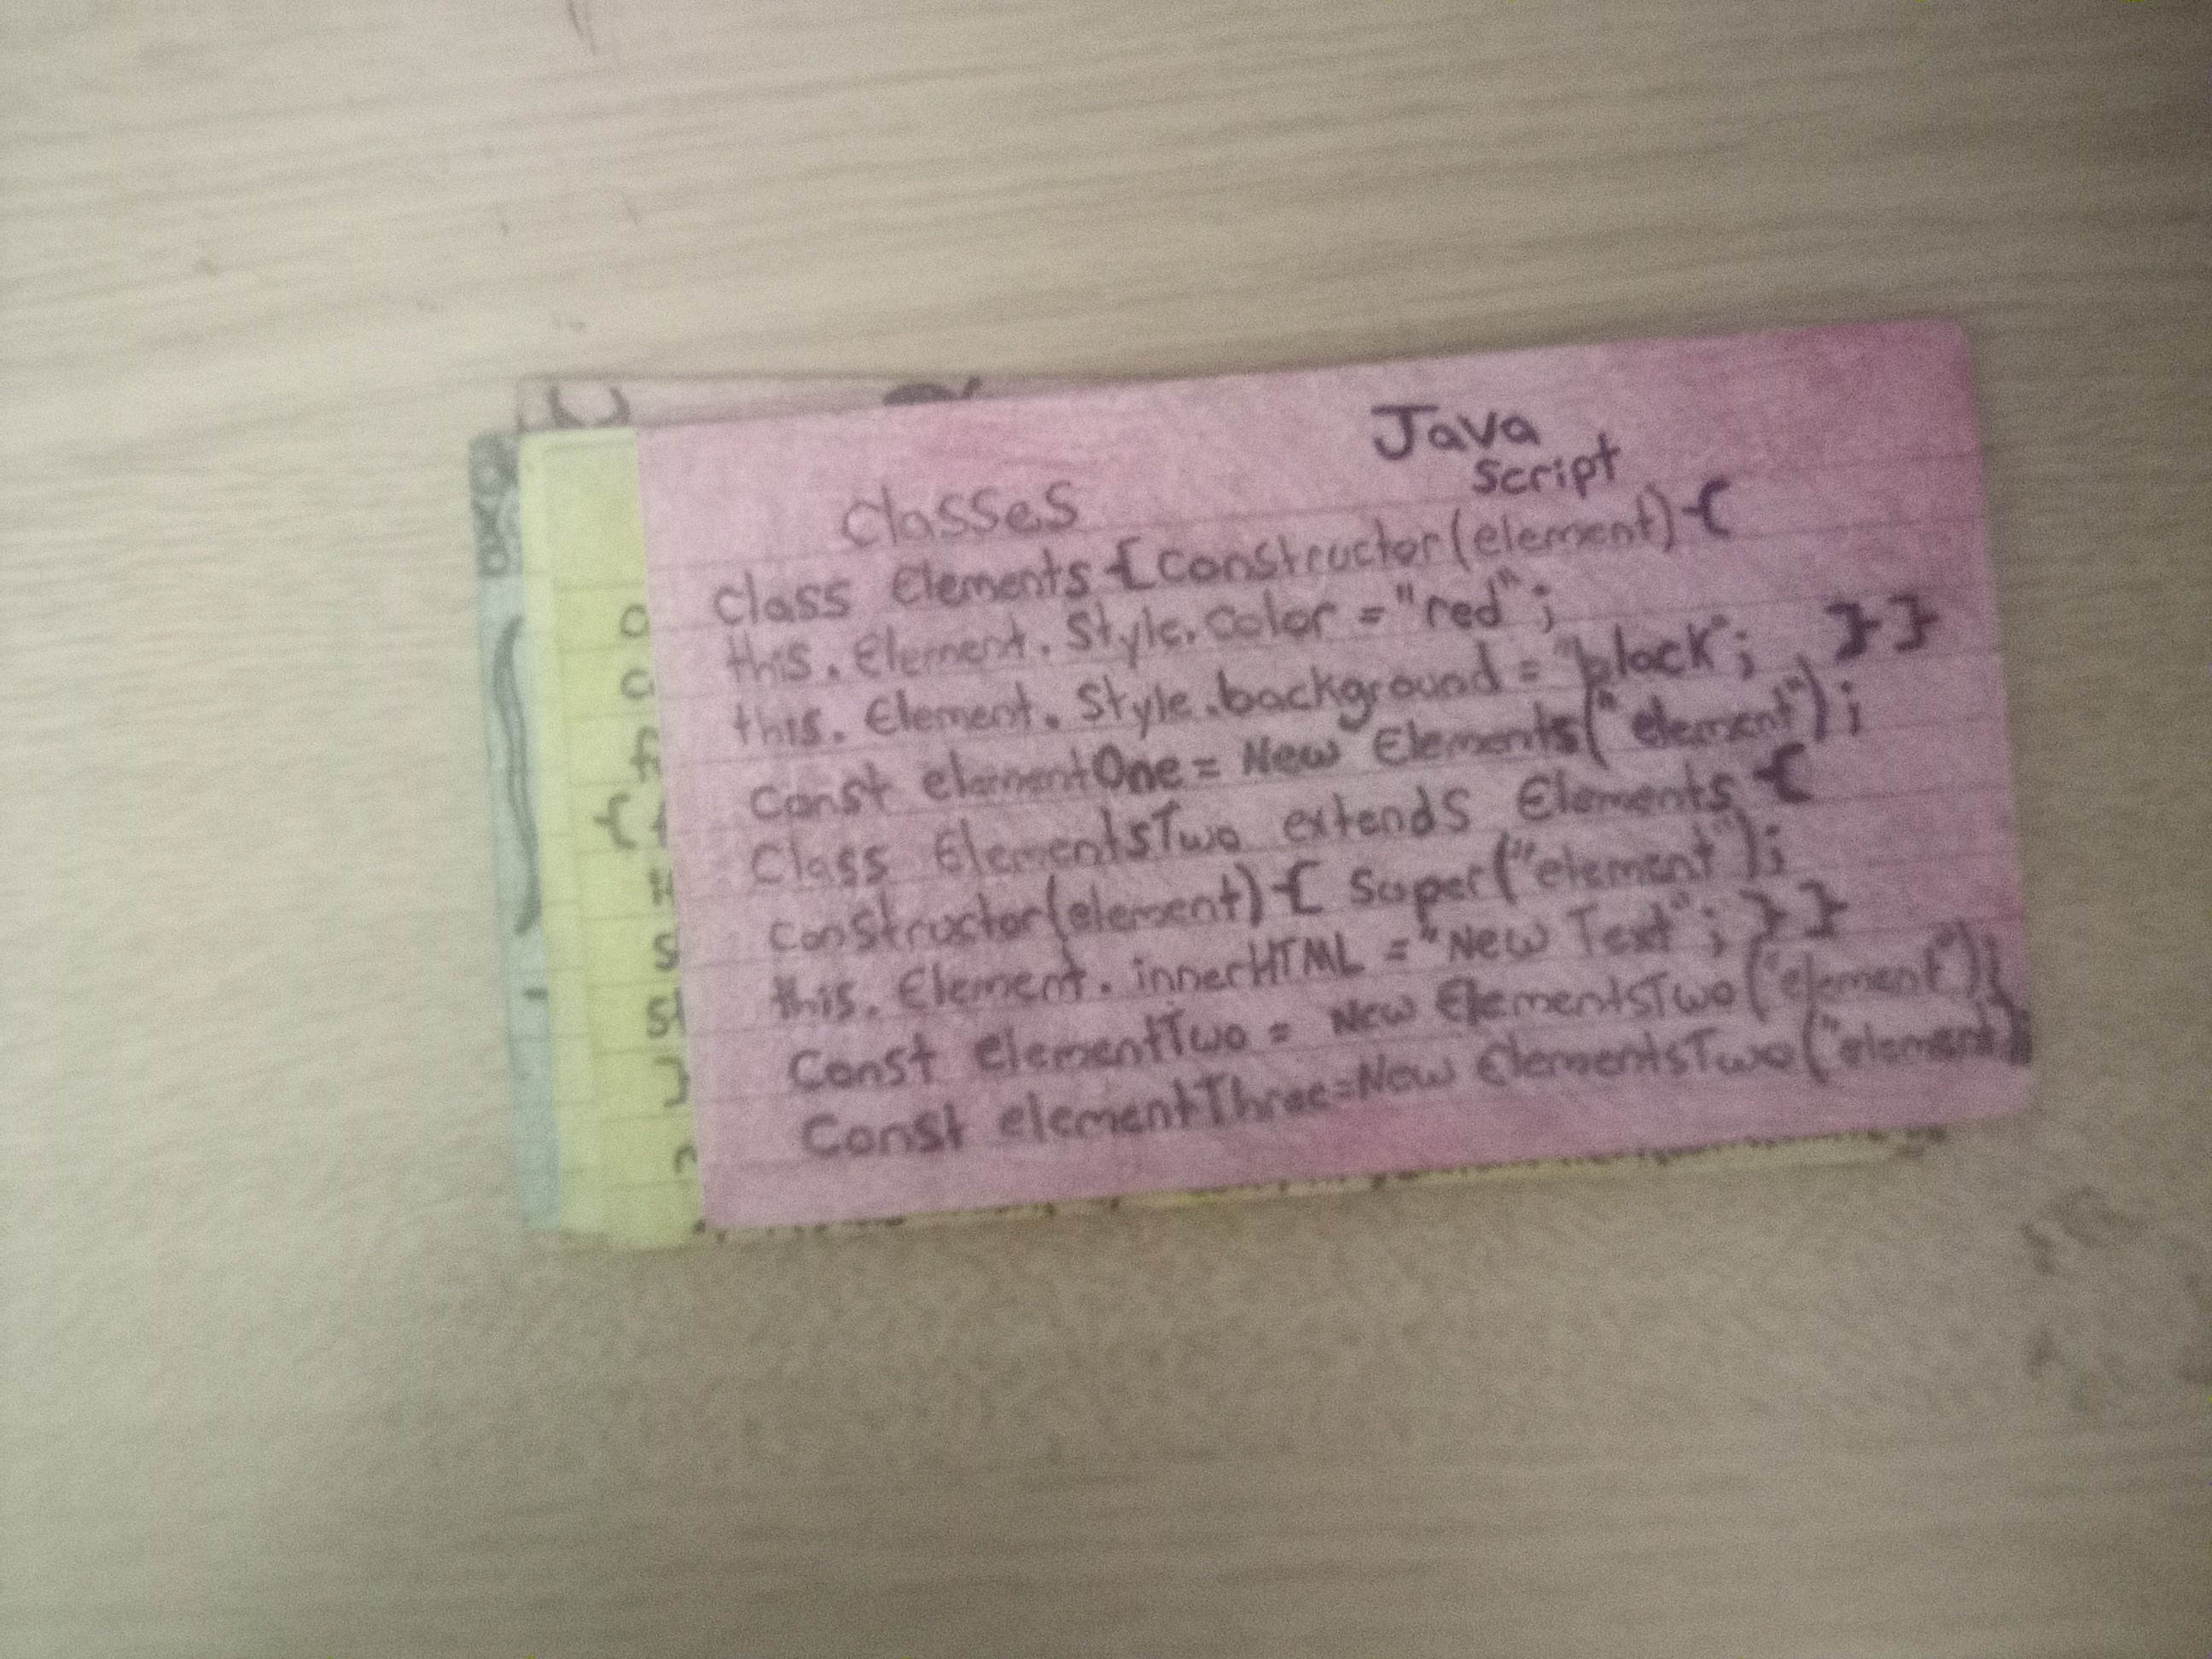 Java
script
Classes
Class Elements { constructor(element) {
this. Element. Style. Color = "red";
this. Element. Style.background = "black"; }}
Const elementOne = New Elements("element");
Class ElementsTwo extends Elements {
constructor(element) { Super("element");
this. Element. innerHTML = "New Text"; }}
Const elementTwo = New ElementsTwo("element");
Const elementThree=New ElementsTwo("element");